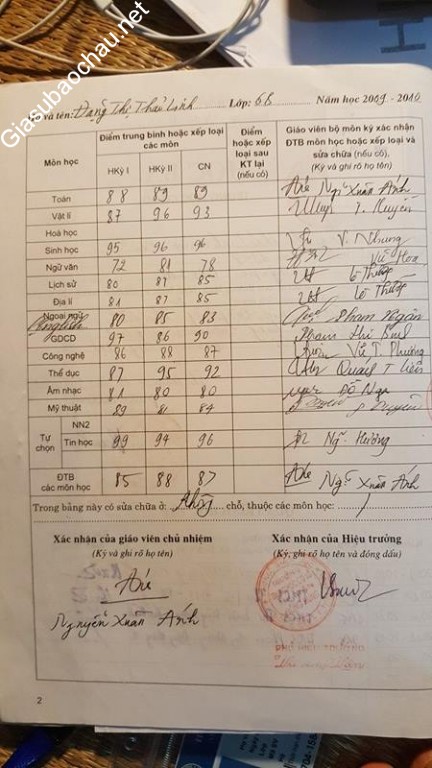 Giasubaochau.net
Họ và tên: Đặng Thị Thái Linh Lớp: 6B Năm học 2009 - 2010
Môn học
Điểm trung bình hoặc xếp loại các môn
HKỳ I
HKỳ II
CN
Điểm hoặc xếp loại sau KT lại (nếu có)
Giáo viên bộ môn ký xác nhận ĐTB môn học hoặc xếp loại và sửa chữa (nếu có).
(Ký và ghi rõ họ tên)
Toán 88 89 89 Ngô Xuân Ánh
Vật lí 87 96 93
Hoá học
Sinh học 95 96 96 V. Nhung
Ngữ văn 72 81 78 Vũ Hoa
Lịch sử 80 87 85
Địa lí 81 87 85
Ngoại ngữ English 80 85 83 Phạm Ngân
GDCD 97 86 90
Công nghệ 86 88 87 Vũ T. Phương
Thể dục 87 95 92
Âm nhạc 81 80 80 Đỗ Nga
Mỹ thuật 89 81 84
Tự chọn
NN2
Tin học 99 94 96 Ng. Hường
ĐTB các môn học 85 88 87 Xuân Ánh
Trong bảng này có sửa chữa ở: Không chỗ, thuộc các môn học: /
Xác nhận của giáo viên chủ nhiệm
(Ký và ghi rõ họ tên)
Nguyễn Xuân Ánh
Xác nhận của Hiệu trưởng
(Ký, ghi rõ họ tên và đóng dấu)
2